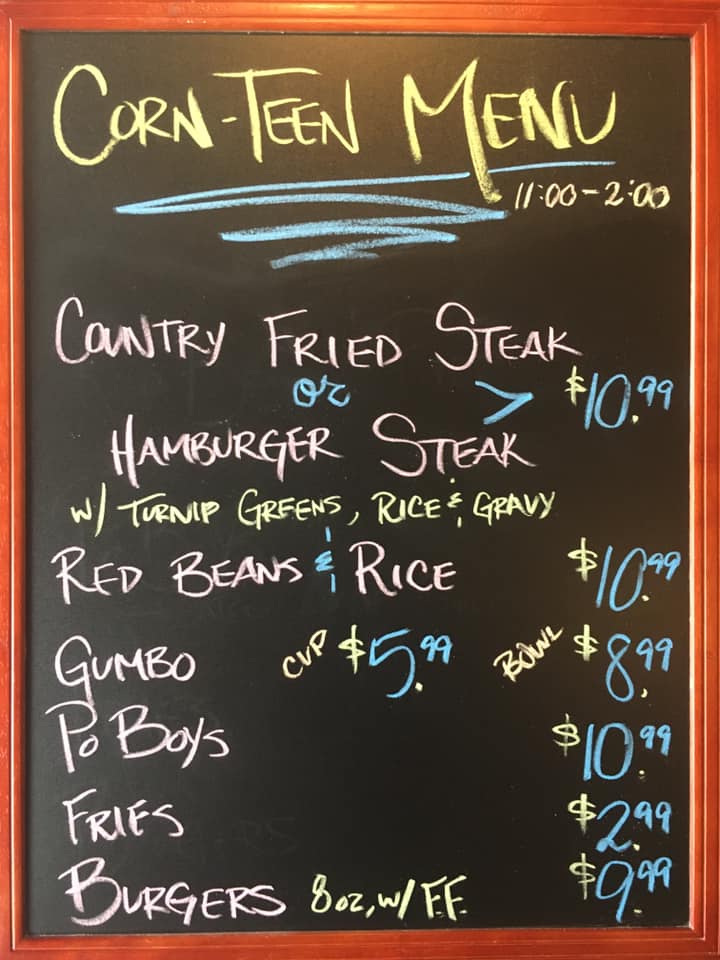 CORN-TEEN MENU
11:00-2:00
COUNTRY FRIED STEAK
or > $10.99
HAMBURGER STEAK
W/ TURNIP GREENS, RICE & GRAVY
RED BEANS & RICE $10.99
GUMBO CUP $5.99 BOWL $8.99
PO BOYS $10.99
FRIES $2.99
BURGERS 8oz, w/ F.F. $9.99